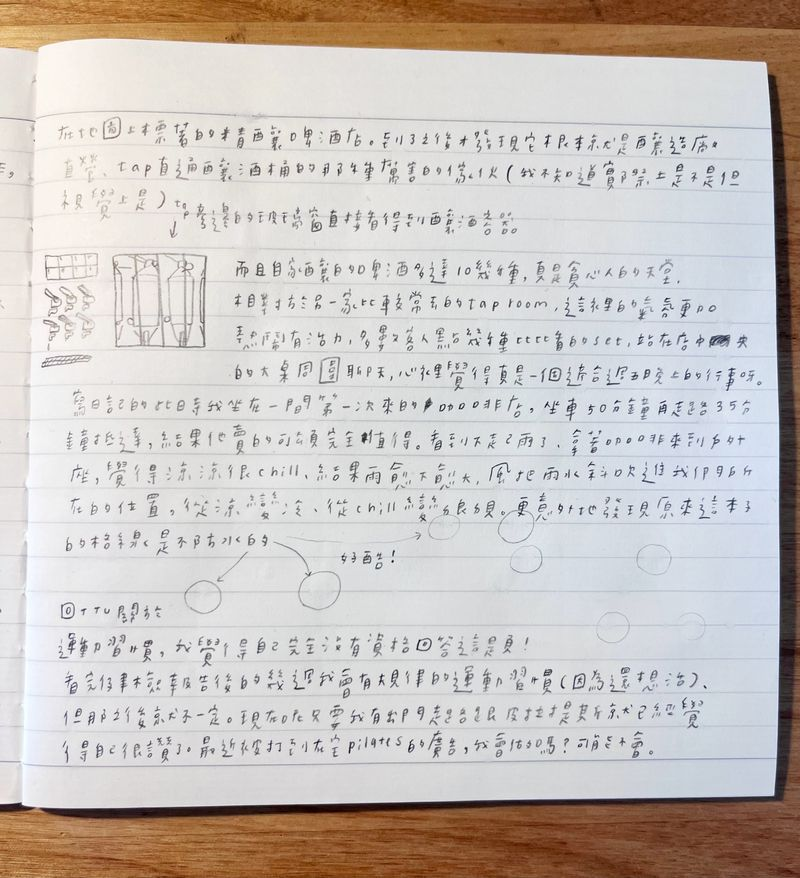 在地圖上標著的精釀啤酒店。到了之後才發現它根本就是釀造廠
直營、tap直通釀酒桶的那種厲害的傢伙(我不知道實際上是不是但
視覺上是)tap旁邊的玻璃窗直接看得到釀酒容器
而且自家釀的啤酒多達10幾種,真是貪心人的天堂.
相對於另一家比較常去的tap room,這裡的氣氛更加
熱鬧有活力,多數客人點幾種比比看的set,站在店中央
的大桌周圍聊天,心裡覺得真是一個適合週五晚上的行事呀。
寫日記的此時我坐在一間第一次來的咖啡店,坐車50分鐘再走路35分
鐘抵達,結果他賣的可頌完全值得。看到不走已雨了、拿著咖啡來到戶外
座,覺得涼涼很chill、結果雨愈下愈大,風把雨水斜吹進我們所
在的位置,從涼變冷、從chill變狼狽。更意外地發現原來這本子
的格線是不防水的
好酷!
OTTU關於
運動習慣,我覺得自己完全沒有資格回答這題!
看完健檢報告後的幾週我會有規律的運動習慣(因為還想活)、
但那之後就不一定。現在呢只要我有出門走路跟皮拉提斯就已經覺
得自己很讚了。最近被打到在空pilates的廣告,我會做嗎?可能不會。